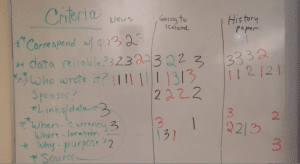 Criteria
News
Going to Iceland
History paper
* Correspond w/
data reliable? 3 2 3 2 2 3 2 2 3 3 3 3 2
Who wrote it? 1 1 1 1 1 1 1 3 1 3 1 1 2 1 2 1
Sponsor? 2 2 2 2
* Links/data 3
When - currency 3
Where - location
Why - purpose? 2
* Source
3
1 3 1
1
3
2 2 1 3
2
3